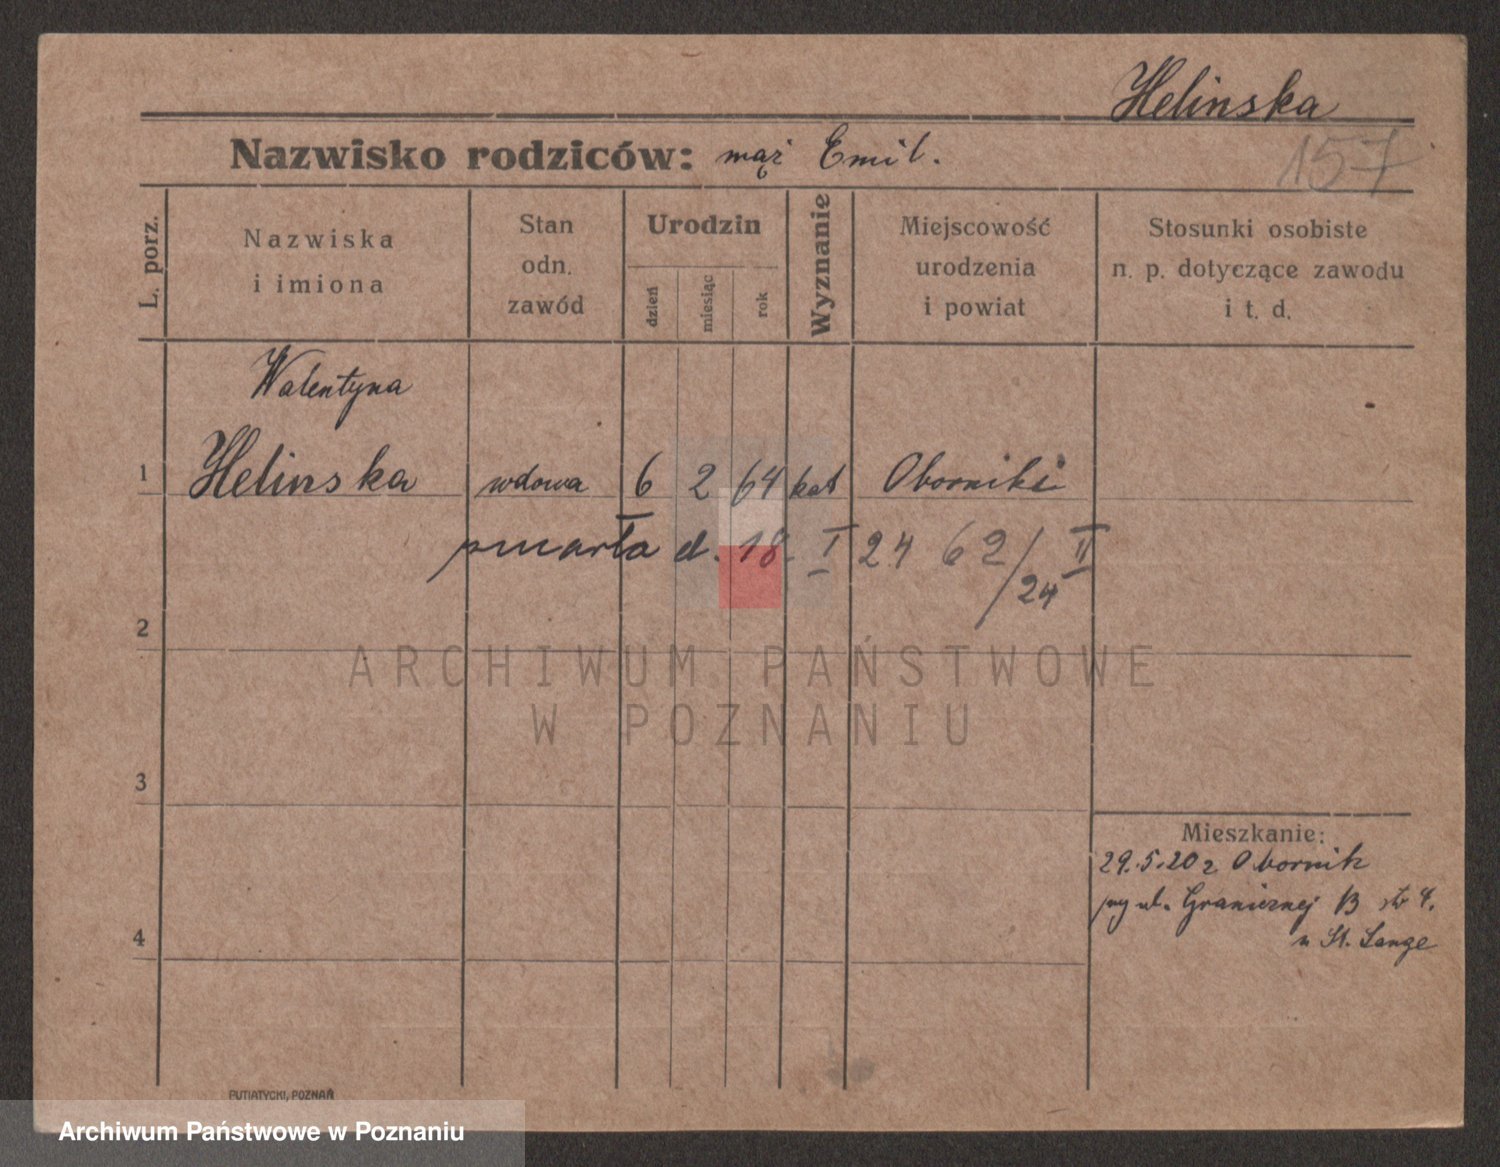 Helinska
157
Nazwisko rodziców: mąż Emil.
L. porz.
Nazwiska
i imiona
Stan
odn.
zawód
Urodzin
dzień
miesiąc
rok
Wyznanie
Miejscowość
urodzenia
i powiat
Stosunki osobiste
n. p. dotyczące zawodu
i t. d.
Walentyna
1 Helinska wdowa 6 2 64 kat Oborniki
zmarła d. 18. I 24 62/24 II
2
ARCHIWUM PAŃSTWOWE
W POZNANIU
3
Mieszkanie:
29.5.20 z Obornik
przy ul. Granicznej B str 4.
u St. Lange
4
PUTIATYCKI, POZNAŃ
Archiwum Państwowe w Poznaniu